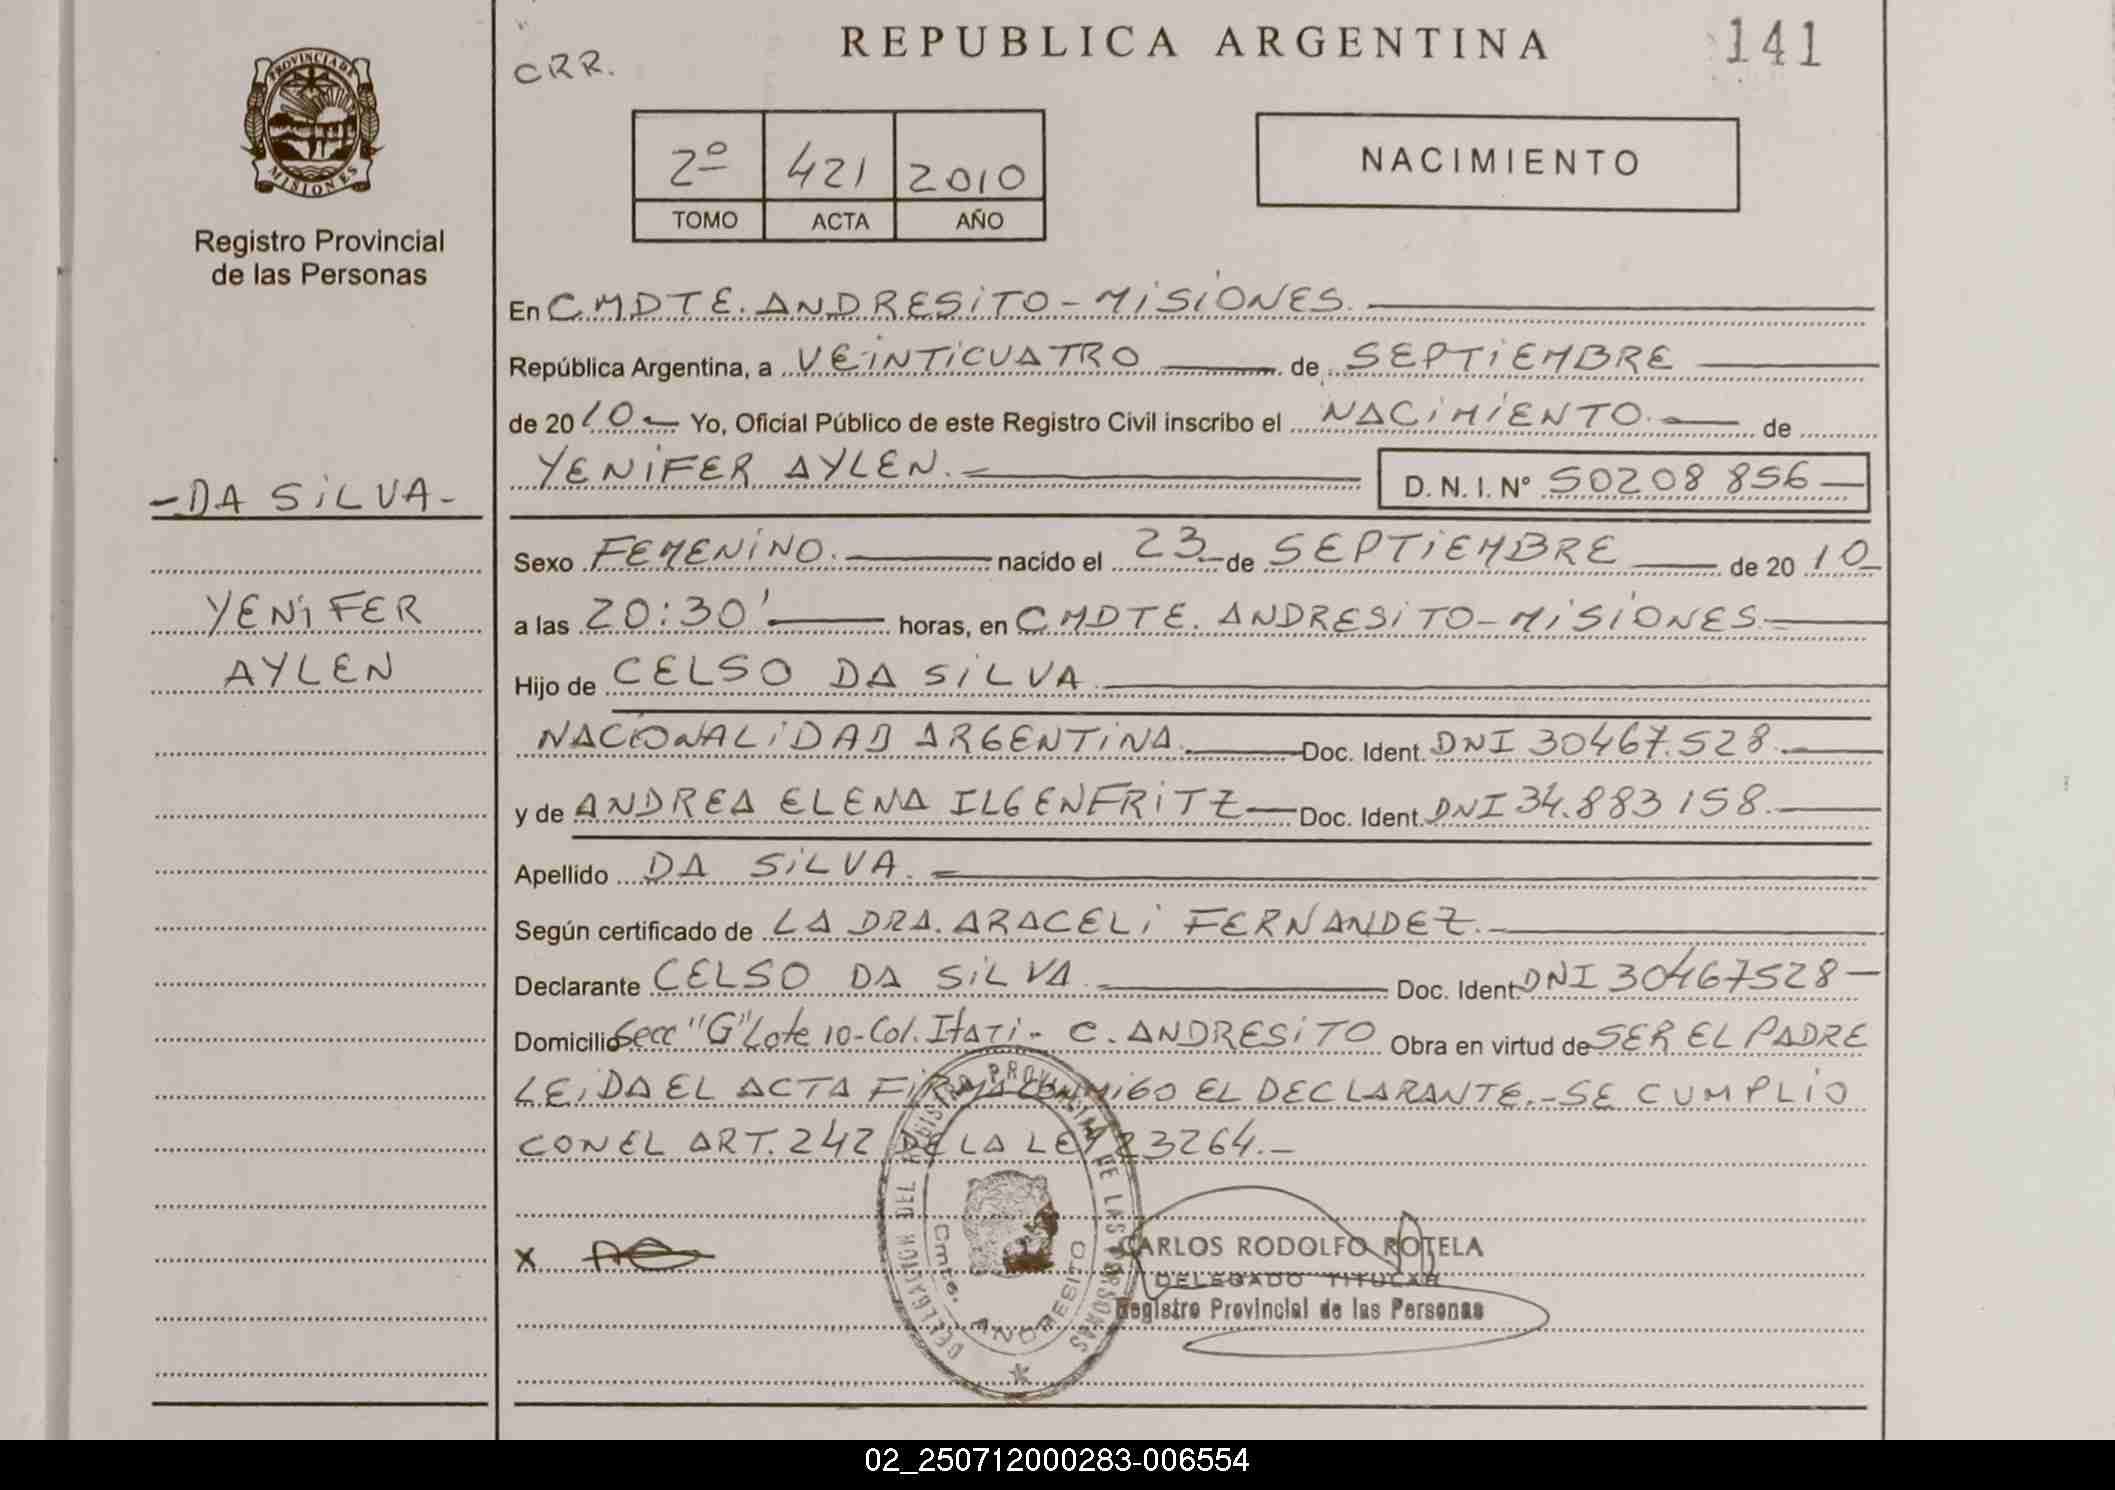 PROVINCIA DE
MISIONES
Registro Provincial
de las Personas
- DA SILVA -
YENIFER
AYLEN
CRR.
REPUBLICA ARGENTINA
141
2º 421 2010
TOMO ACTA AÑO
NACIMIENTO
En CMDTE. ANDRESITO - MISIONES.
República Argentina, a VEINTICUATRO de SEPTIEMBRE
de 2010 Yo, Oficial Público de este Registro Civil inscribo el NACIMIENTO. de
YENIFER AYLEN. D. N. I. Nº 50208 856
Sexo FEMENINO. nacido el 23 de SEPTIEMBRE de 2010
a las 20:30' horas, en CMDTE. ANDRESITO - MISIONES.
Hijo de CELSO DA SILVA
NACIONALIDAD ARGENTINA. Doc. Ident. DNI 30467.528.
y de ANDREA ELENA ILGENFRITZ Doc. Ident. DNI 34.883 158.
Apellido DA SILVA.
Según certificado de LA DRA. ARACELI FERNANDEZ.
Declarante CELSO DA SILVA Doc. Ident. DNI 30467528
Domicilio Secc "G" Lote 10 - Col. Itati - C. ANDRESITO Obra en virtud de SER EL PADRE
LEIDA EL ACTA FIRMA CONMIGO EL DECLARANTE. - SE CUMPLIO
CON EL ART. 242 DE LA LEY 23264. -
DELEGACION DEL REGISTRO PROVINCIAL DE LAS PERSONAS
Cmte. ANDRESITO
X
CARLOS RODOLFO ROTELA
DELEGADO TITULAR
Registro Provincial de las Personas
02_250712000283-006554